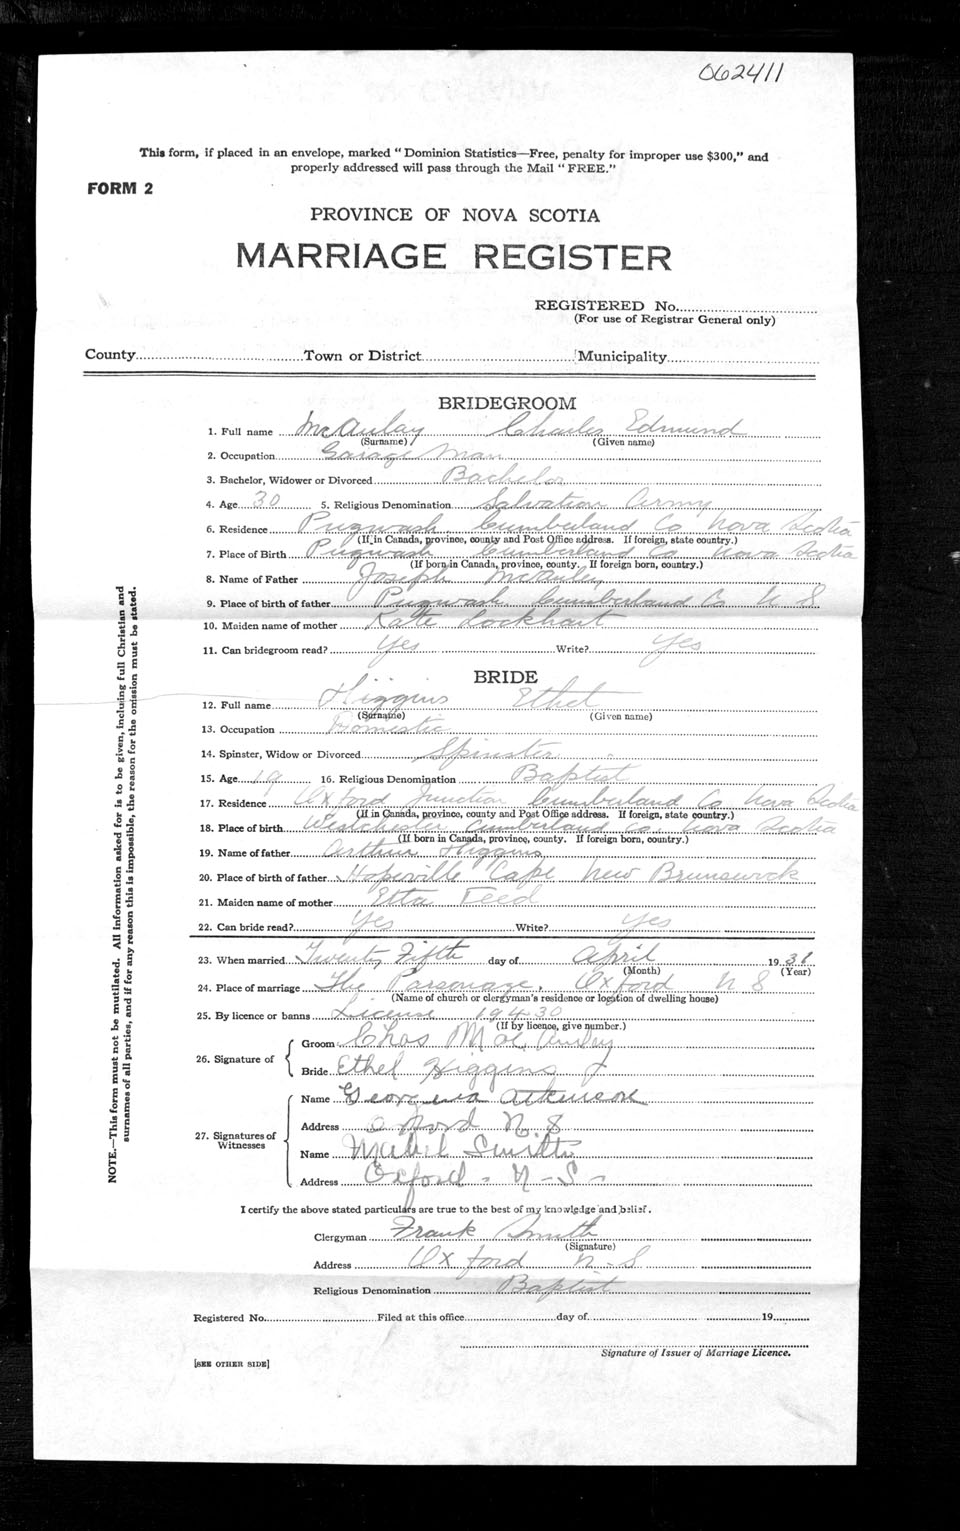 062411
This form, if placed in an envelope, marked "Dominion Statistics—Free, penalty for improper use $300," and
properly addressed will pass through the Mail "FREE."
FORM 2
PROVINCE OF NOVA SCOTIA
MARRIAGE REGISTER
REGISTERED No.
(For use of Registrar General only)
County Town or District Municipality
BRIDEGROOM
1. Full name McAulay Charles Edmund
(Surname) (Given name)
2. Occupation Garage Man
3. Bachelor, Widower or Divorced Bachelor
4. Age 30 5. Religious Denomination Salvation Army
6. Residence Pugwash Cumberland Co Nova Scotia
(If in Canada, province, county and Post Office address. If foreign, state country.)
7. Place of Birth Pugwash Cumberland Co Nova Scotia
(If born in Canada, province, county. If foreign born, country.)
8. Name of Father Joseph McAuley
9. Place of birth of father Pugwash Cumberland Co N S
10. Maiden name of mother Kate Lockhart
11. Can bridegroom read? Yes Write? Yes
BRIDE
12. Full name Higgins Ethel
(Surname) (Given name)
13. Occupation Domestic
14. Spinster, Widow or Divorced Spinster
15. Age 19 16. Religious Denomination Baptist
17. Residence Oxford Junction Cumberland Co Nova Scotia
(If in Canada, province, county and Post Office address. If foreign, state country.)
18. Place of birth Westchester Cumberland Co. Nova Scotia
(If born in Canada, province, county. If foreign born, country.)
19. Name of father Arthur Higgins
20. Place of birth of father Hopeville Cape New Brunswick
21. Maiden name of mother Etta Feed
22. Can bride read? Yes Write? Yes
23. When married Twenty Fifth day of April 1931
(Month) (Year)
24. Place of marriage The Parsonage, Oxford N S
(Name of church or clergyman's residence or location of dwelling house)
25. By licence or banns License 19430
(If by licence, give number.)
26. Signature of
Groom Chas McAuley
Bride Ethel Higgins
27. Signatures of Witnesses
Name Georgena Atkinson
Address Oxford N. S
Name Mabel Smith
Address Oxford - N - S -
I certify the above stated particulars are true to the best of my knowledge and belief.
Clergyman Frank Smith
(Signature)
Address Oxford N-S
Religious Denomination Baptist
Registered No. Filed at this office day of 19
Signature of Issuer of Marriage Licence.
[SEE OTHER SIDE]
NOTE.—This form must not be mutilated. All Information asked for is to be given, including full Christian and
surnames of all parties, and if for any reason this is impossible, the reason for the omission must be stated.